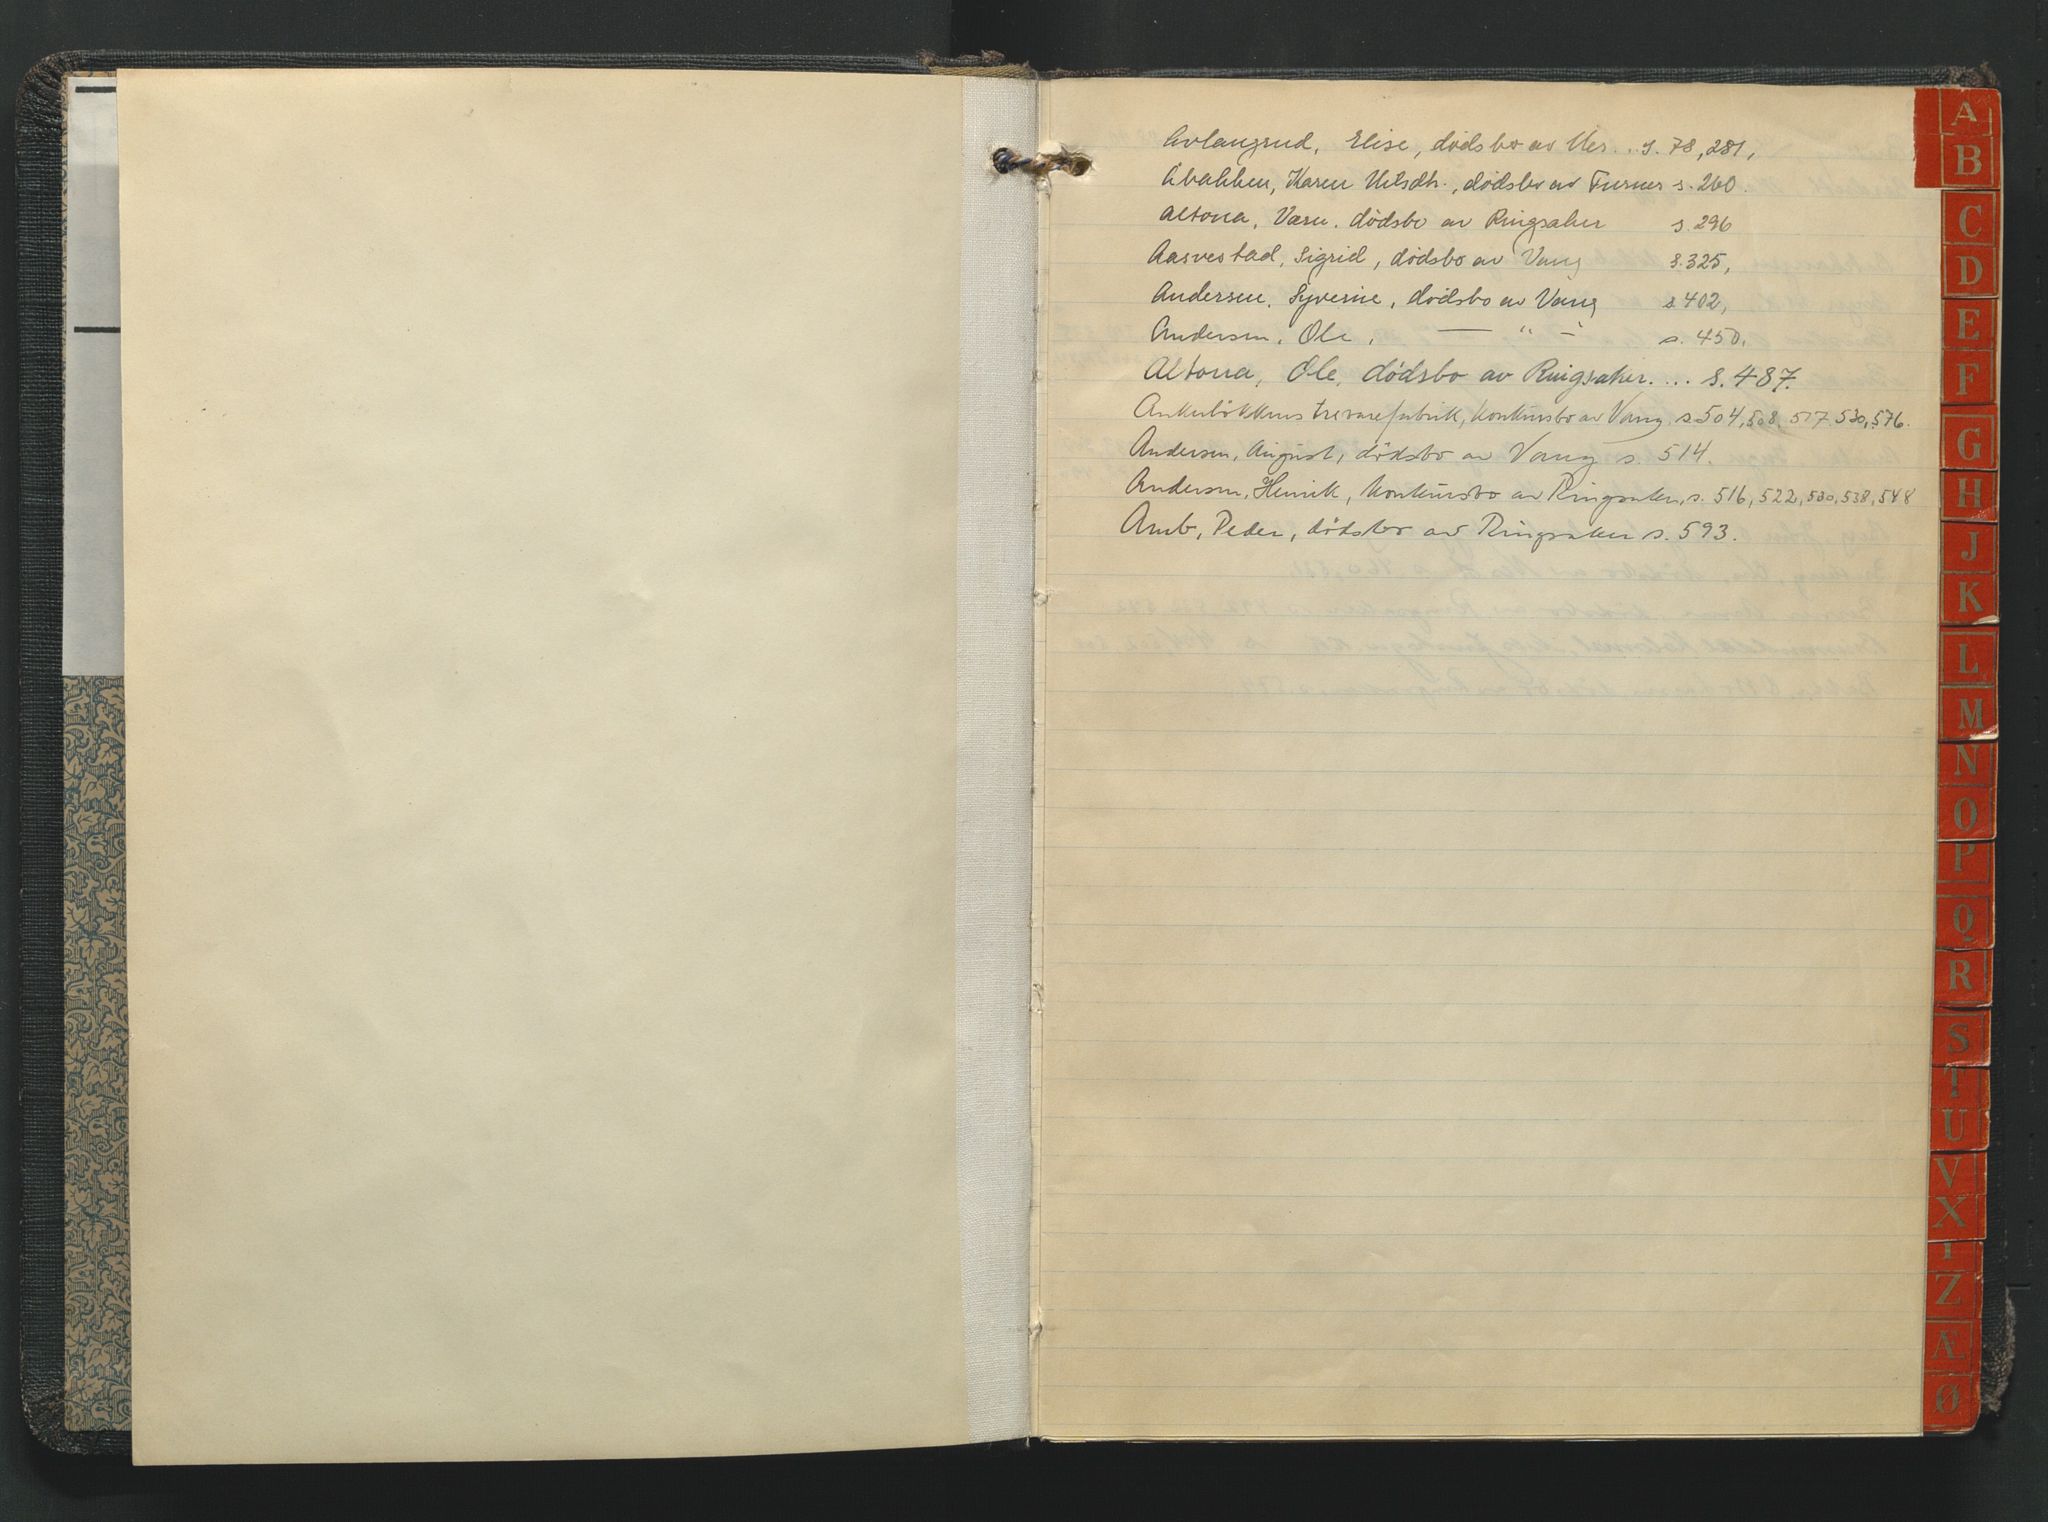 Avlangrud, Elise, dødsbo av Nes... s. 78, 281,
Åbakken, Karen Nilsdtr., dødsbo av Furnes s. 260.
Altona, Varn. dødsbo av Ringsaker s. 296
Aasvestad, Sigrid, dødsbo av Vang s. 325,
Andersen, Syverine, dødsbo av Vang s. 402,
Andersen, Ole, — " — s. 450.
Altona, Ole, dødsbo av Ringsaker.... s. 487.
Ankerløkkens trevarefabrik, konkursbo av Vang, s. 504, 508, 517, 530, 576.
Andersen, August, dødsbo av Vang s. 514.
Andersen, Henrik, konkursbo av Ringsaker, s. 516, 522, 530, 538, 548
Amb, Peder, dødsbo av Ringsaker s. 593.
A
B
C
D
E
F
G
H
J
K
L
M
N
O
P
Q
R
S
T
U
V
X
Y
Z
Æ
Ø